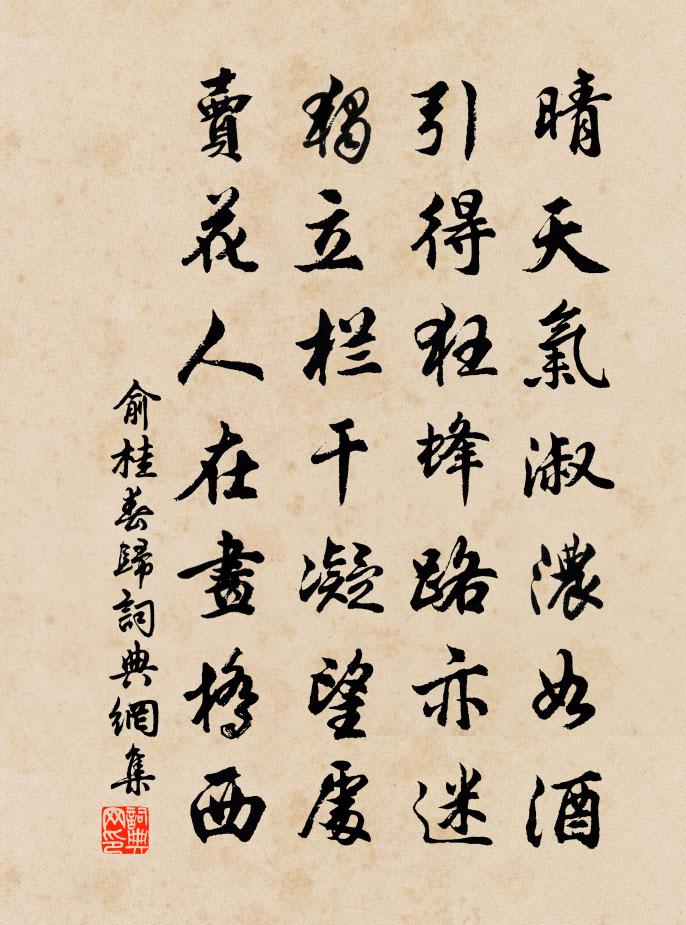 晴天氣淑濃如酒
引得狂蜂路亦迷
獨立栏干凝望處
賣花人在畫橋西
俞桂春歸詞典網集
詞典网印